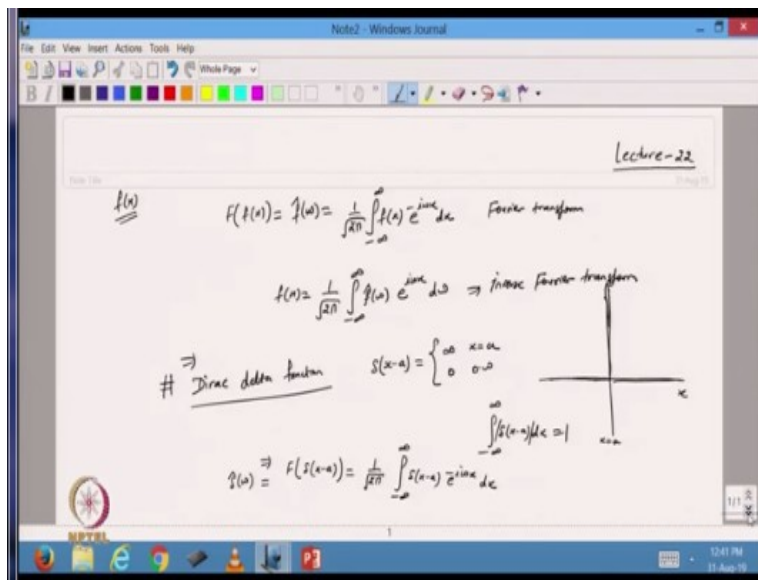 Note2 - Windows Journal
File Edit View Insert Actions Tools Help
Whole Page
B I
Lecture-22
f(x)
F(f(x)) = f̂(ω) = 1/√2π ∫_{-∞}^{∞} f(x) e^{-iωx} dx Fourier transform
f(x) = 1/√2π ∫_{-∞}^{∞} f̂(ω) e^{iωx} dω ⇒ inverse Fourier transform
⇒
# Dirac delta function δ(x-a) = { ∞ x=a
0 o.w
x
∫_{-∞}^{∞} δ(x-a) dx = 1
x=a
δ̂(ω) = ⇒ F(δ(x-a)) = 1/√2π ∫_{-∞}^{∞} δ(x-a) e^{-iωx} dx
NPTEL
1
1/1
12:41 PM
31-Aug-19